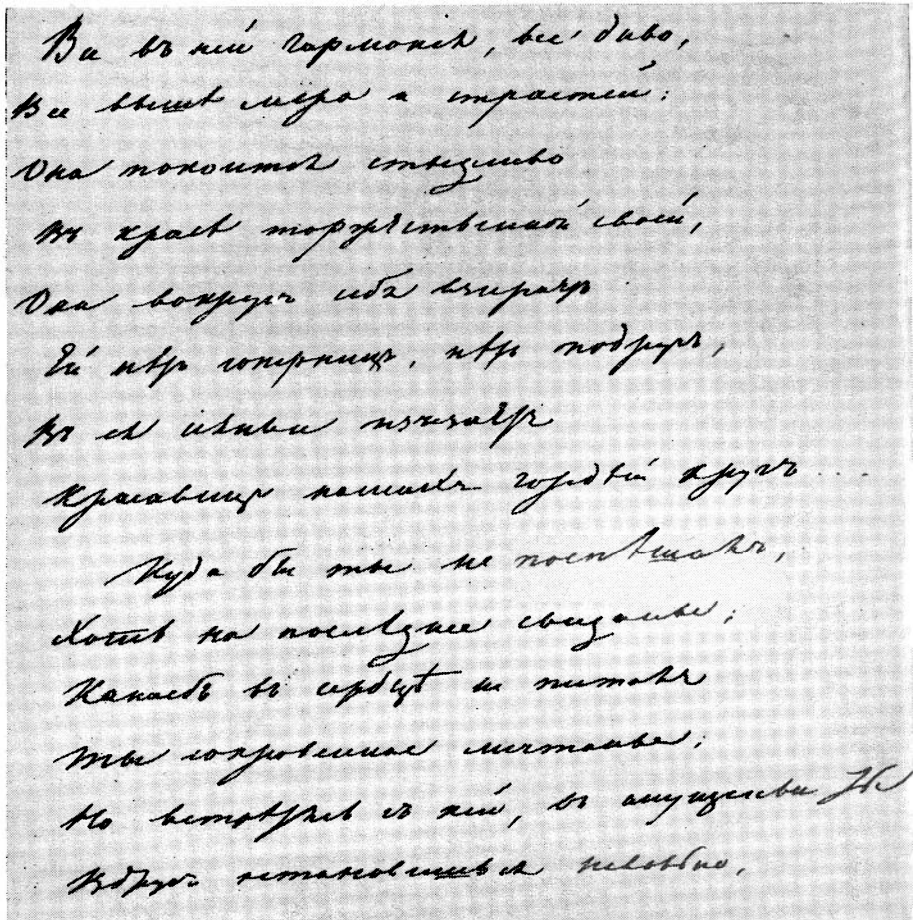 Все въ ней гармонія, все диво,
Все выше мира и страстей:
Она покоится стыдливо
Въ красѣ торжественной своей;
Она вокругъ себя взираетъ
Ей нѣтъ соперницъ, нѣтъ подругъ,
Въ ея сіяньи изчезаетъ
Красавицъ нашихъ гордый кругъ....
Куда бы ты не поспѣшалъ,
Хоть на послѣднее свиданье;
Какое бъ въ сердцѣ не питалъ
Ты сокровенное мечтанье;
Но встрѣтясь съ ней, въ смущеньи
Вдругъ остановишься невольно,